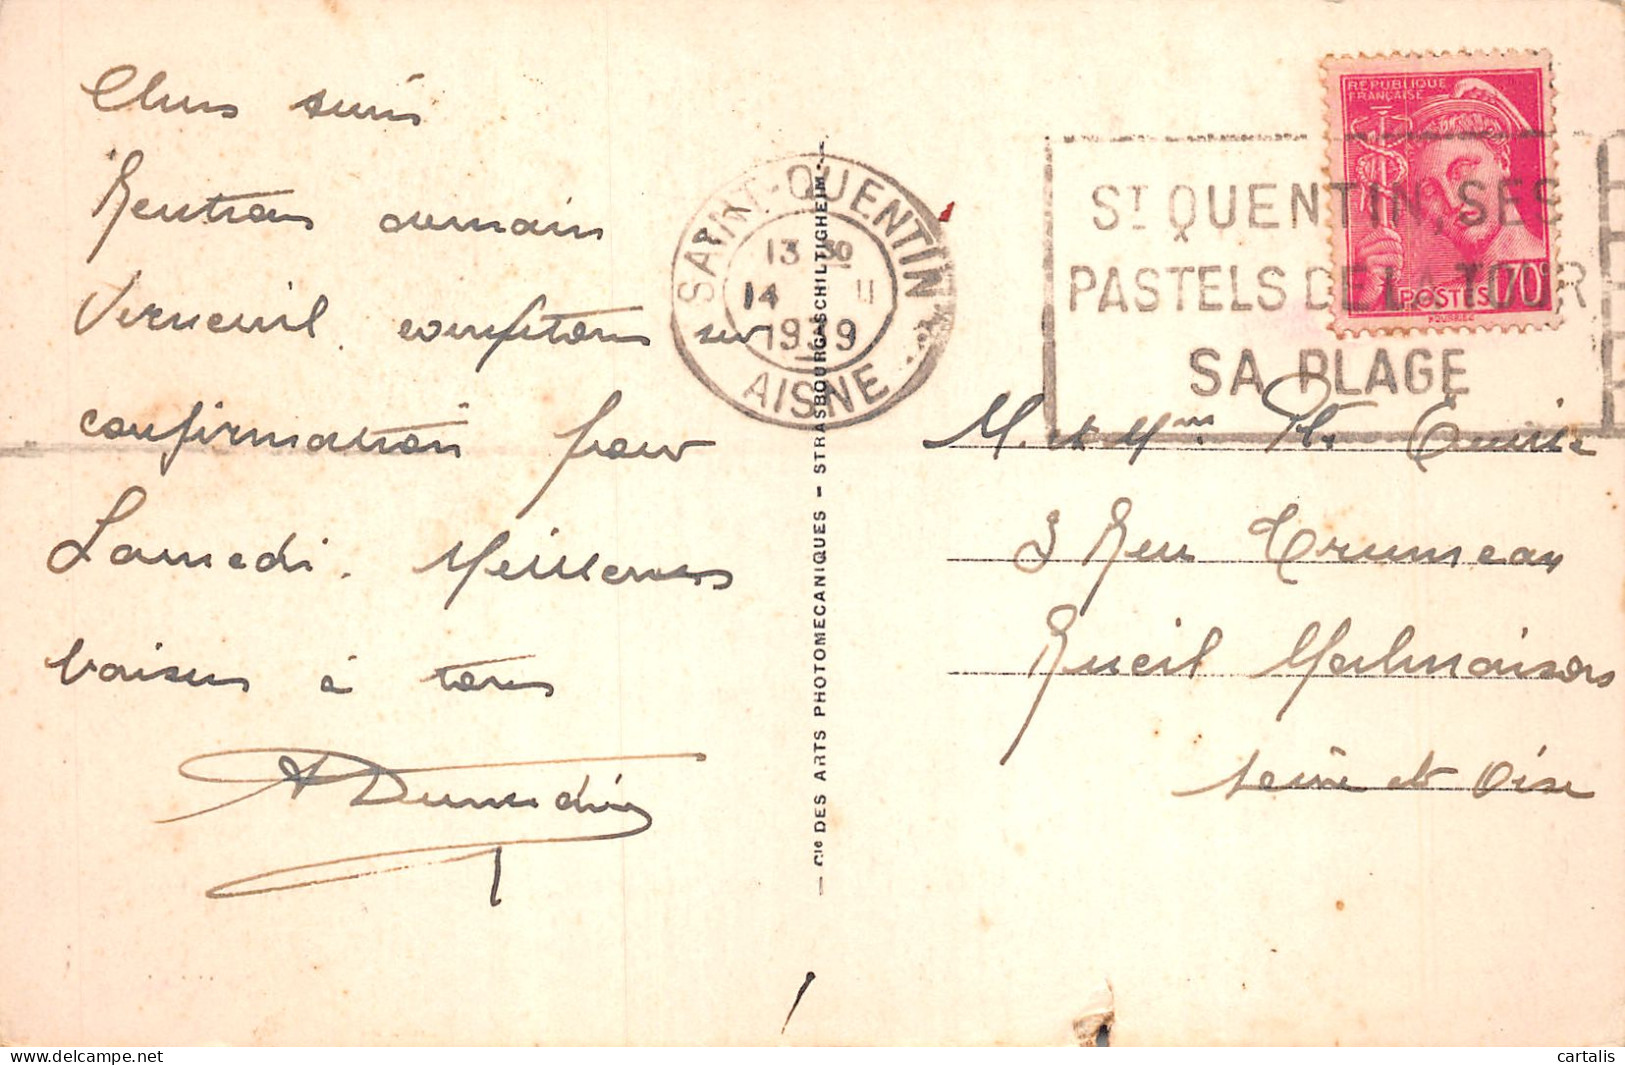 Chers amis
Rentrons demain
Verneuil. comptons sur
confirmation pour
Samedi. Meilleurs
baisers à tous
SAINT-QUENTIN
13 30
14 II
1939
AISNE
ST QUENTIN, SES
PASTELS DE LA TOUR
SA PLAGE
REPUBLIQUE
FRANÇAISE
POSTES 70c
Cie DES ARTS PHOTOMECANIQUES - STRASBOURGASCHILTIGHEIM
M. et Mme
3 Rue Trumeau
Rueil Malmaison
Seine et Oise
delcampe.net
cartalis